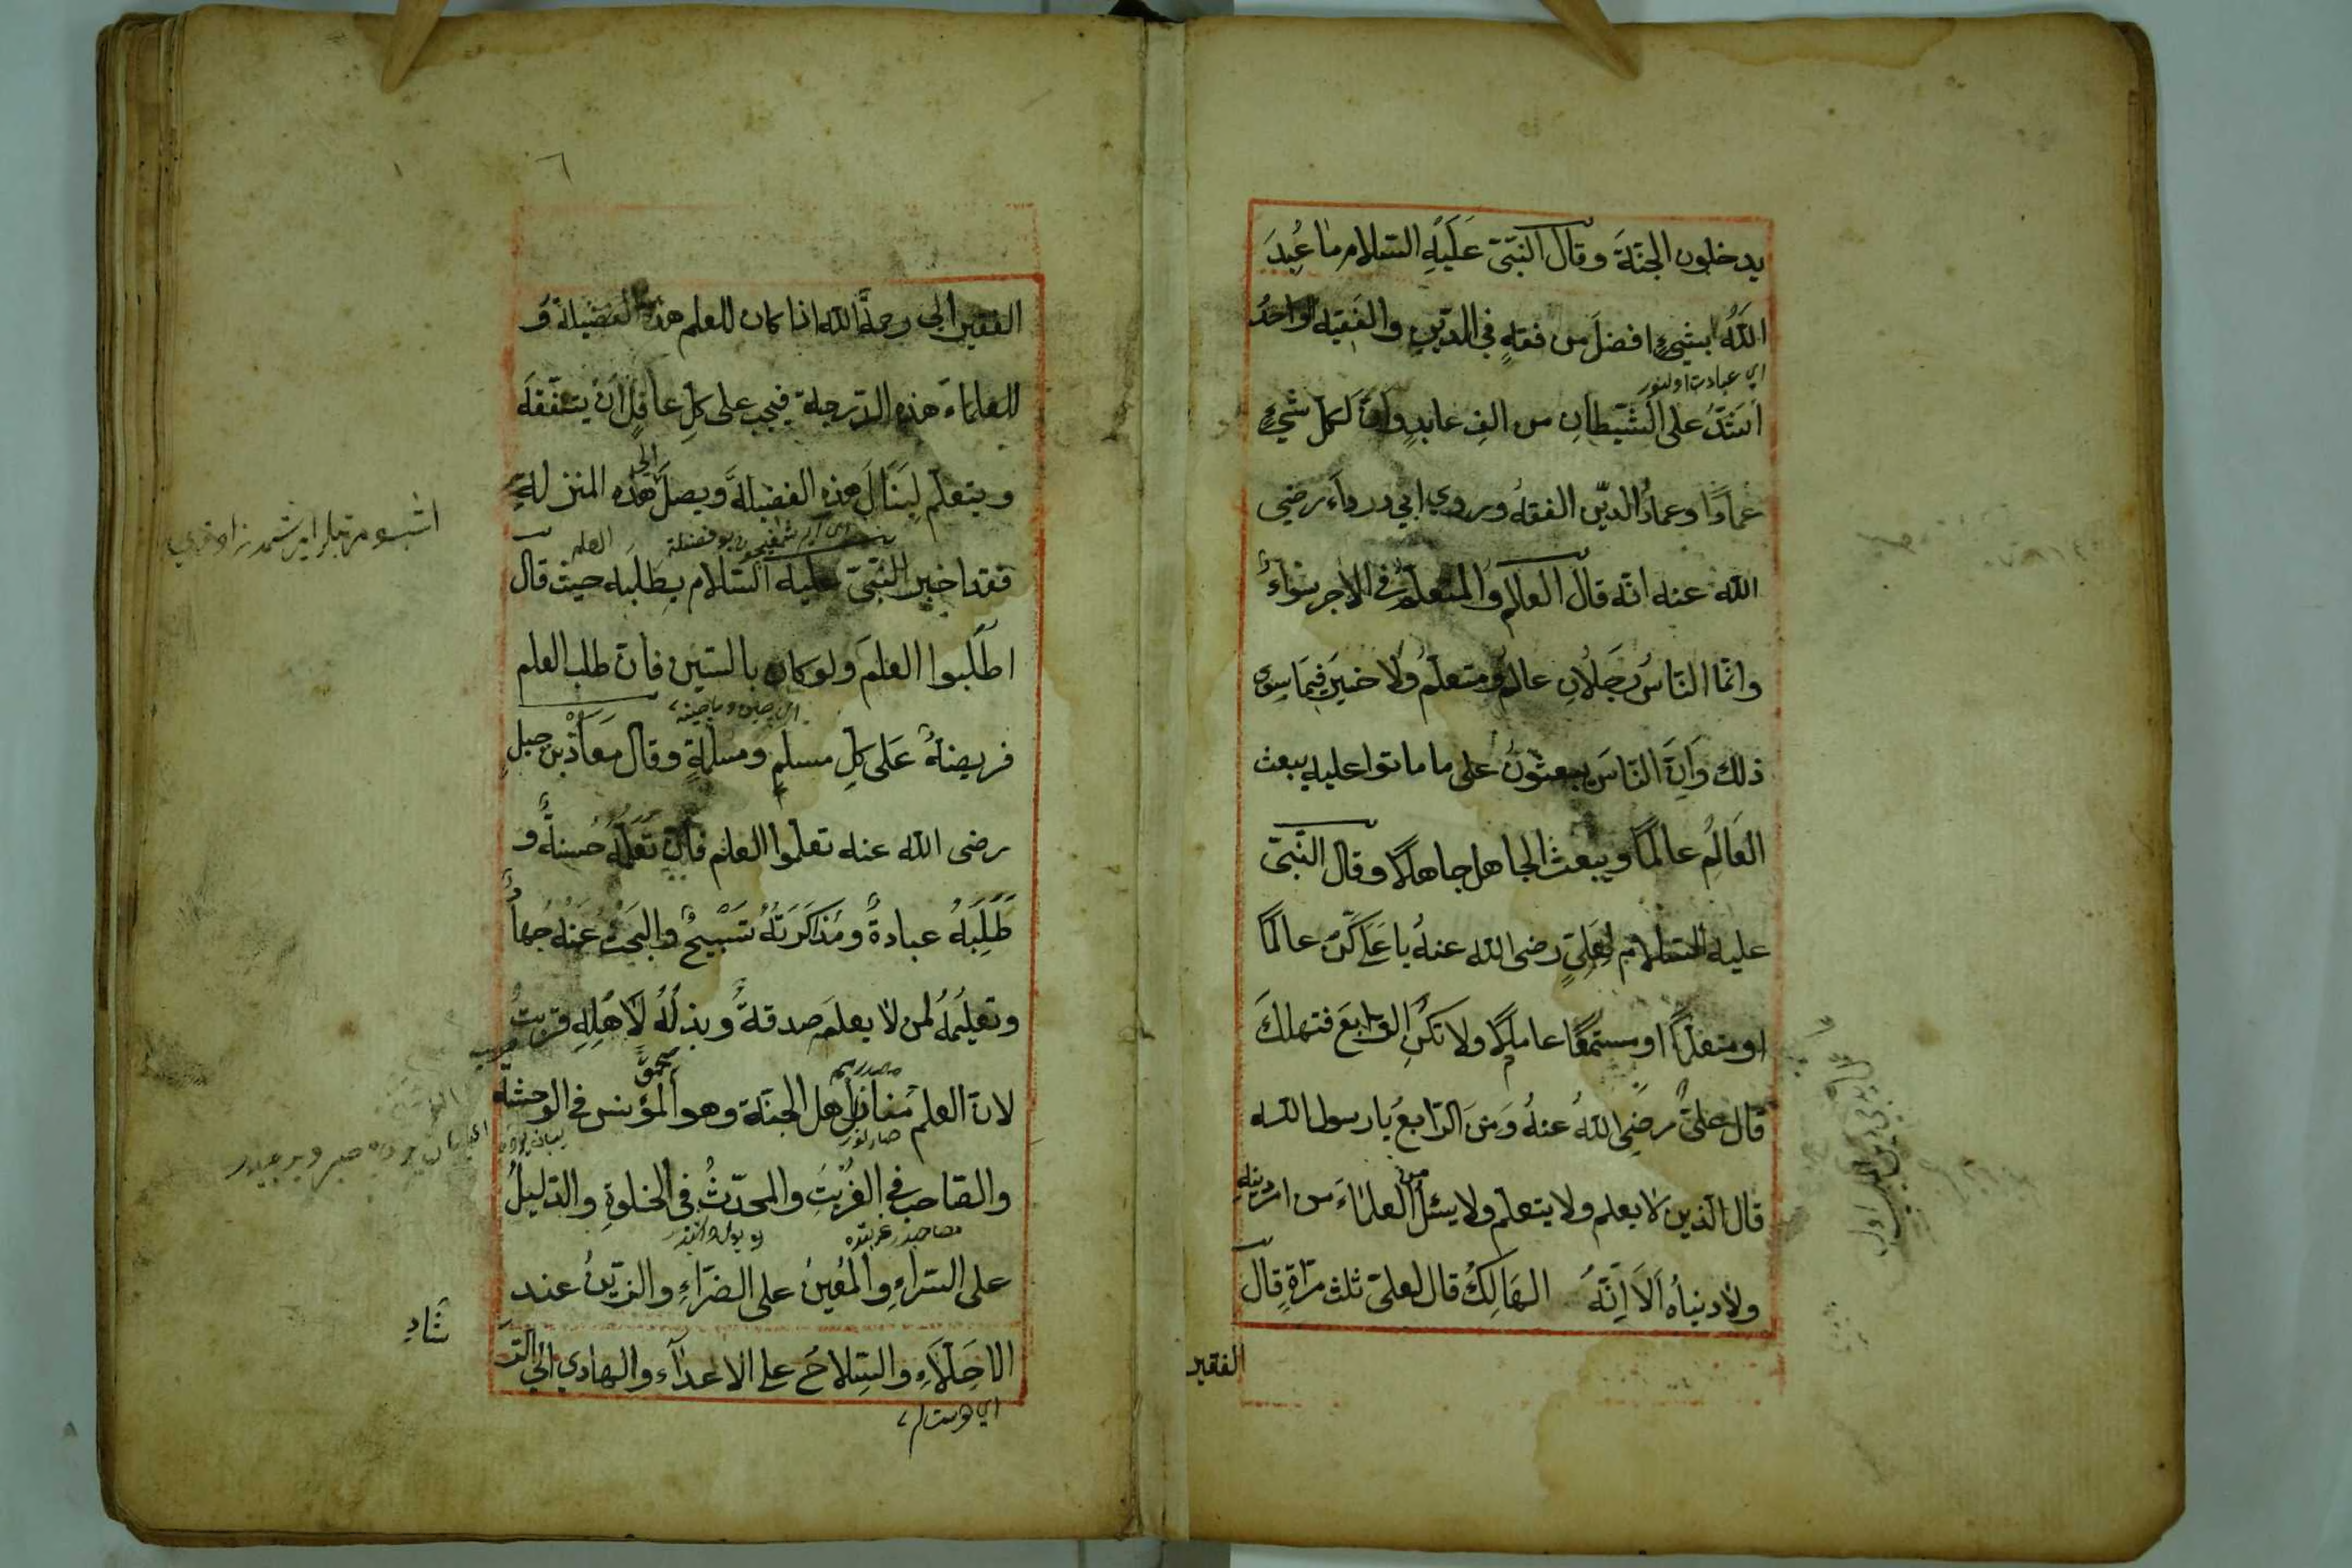 يدخلون الجنّة وقال النّبىّ عَلَيْهِ السّلام ما عُبِدَ
اللّهُ بشيءٍ افضلَ من فقهٍ في الدّينِ والفَقيه الواحدُ
اي عبادت اولنور
اَشَدُّ على الشّيطانِ من الفِ عابدٍ وانّ لكلّ شيءٍ
عمادًا وعمادُ الدّين الفقهُ وروي ابي درداء رضي
اللّه عنه انّه قال العالم والمتعلّم في الاجر سَواءٌ
وانّما النّاسُ رَجُلانِ عالمٌ ومتعلّمٌ ولَا خيرَ فيمَا سِوى
ذلك وَاِنَّ النّاسَ يبعثونَ على ما ماتوا عليه يبعث
العَالِمُ عالمًا ويبعث الجاهل جاهلًا وقال النّبىّ
عليه السّلام لِعَلِيٍّ رضى اللّه عنهُ يا عَلى كُنْ عالمًا
او متعلّمًا او مستمعًا عاملًا ولا تكُنِ الرّابعَ فتهلكَ
قال علىّ رضِى اللّهُ عنهُ وَمَنَ الرّابعُ يا رسول اللّه
قال الّذين لا يعلم ولا يتعلّم ولا يسئل العلمَاءَ من امر دينهِ
ولا دنياهُ اَلَا اِنَّهُ الهَالِكُ قال لعلىّ ثلث مرّاةٍ قال
الفقير
الفقير ابي رحمة اللّه اذا كان للعلم هذه الفضيلة وَ
للعلمَاءَ هذه الدّرجة فيجب على كلِّ عاقلٍ اَنْ يتفقّهَ
ويتعلّم لِيَنَالَ هذه الفضيلةَ ويصلَ الى هذه المنزلةِ
العلم
فقد اخبر النّبىّ عليه السّلام بِطَلَبِه حيث قال
اطلُبوا العلمَ ولو كان بالسّين فانّ طلب العلم
فريضةٌ عَلى كلِّ مسلمٍ ومسلمةٍ وقال معاذ بن جبلٍ
رضى اللّه عنه تعلّموا العلم فانّ تَعَلُّمَهُ حَسنةٌ وَ
طَلَبَهُ عبادةٌ ومُذَاكَرَتَهُ تَسْبِيحٌ والبَحْثُ عَنْهُ جهادٌ
وتعليمُهُ لمن لا يعلم صدقةٌ وبذلُهُ لِاَهْلِهِ قربتٌ
لانّ العلم منازل اهل الجنّة وهو المؤنس في الوحشة
والصّاحب في الغُرْبَتِ والمحدّثُ في الخلوةِ والدّليلُ
مصاحبدر غربتده
على السّراءِ والمُعينُ على الضرّاءِ والزّينُ عند
شاد
الاخِلّاءِ والسّلاحُ على الاعدآء والهادي الى الدّر